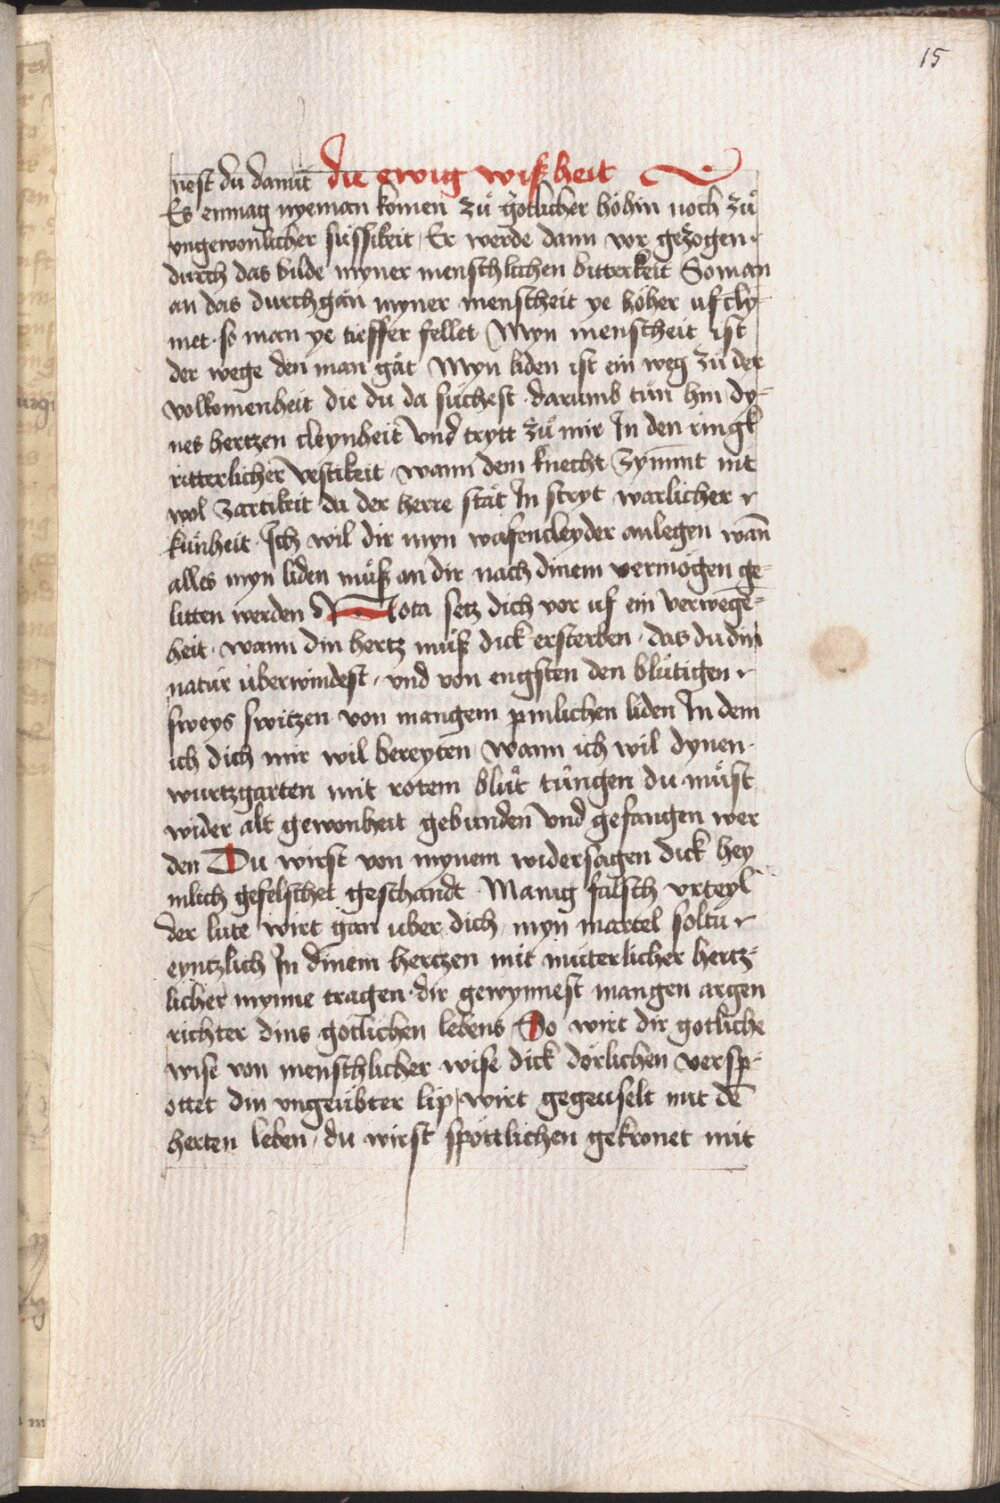 15
nest du damit die ewig wißheit
Es enmag nyeman komen zuͦ gotlicher hoͤhin noch zuͦ
vngewonlicher suͤssikeit / Er werde dann vor gezogen ·
durch das bilde myner menschlichen bitterkeit So man
an das durchgan myner menscheit ye hoͤher uf cly-
met · so man ye tieffer fellet Myn menscheit ist
der wege den man gat Myn liden ist ein weg zuͦ der
volkomenheit die du da suͦchest · darumb tuͦn hin dy-
nes hertzen cleynheit vnd trytt zuͦ mir In den ringk
ritterlicher vestikeit · wann dem knecht zymmt nit
wol zartikeit da der herre stat In stryt warlicher
kuͤnheit · Ich wil dir myn wafencleyder anlegen wan̄
alles myn liden muͦß an dir nach dinem vermoͤgen ge-
litten werden Nota setz dich vor uf ein verwege-
heit · wann din hertz muͦß dick ersterben · das du din
natur uberwindest / vnd von engsten den bluͦtigen
sweys switzen von mangem pinlichen liden In dem
ich dich mir wil bereyten wann ich wil dynen ·
wurtzgarten mit rotem bluͦt tungen du muͦst
wider alt gewonheit gebunden vnd gefangen wer
den Du wirst von mynem widersagen dick hey
mlich gefelschet geschandt · Manig falsch vrteyl
der lute wirt gan uber dich / myn martel soltu
eyntzlich In dinem hertzen mit muterlicher hertz-
licher mynne tragen · dir gewynnest mangen argen
richter dins gotlichen lebens So wirt dir gotliche
wise von menschlicher wise dick dorlichen versp-
ottet din vngeuͤbter lip / wirt gegeuselt mit dē
herten leben / du wirst spottlichen gekronet mit